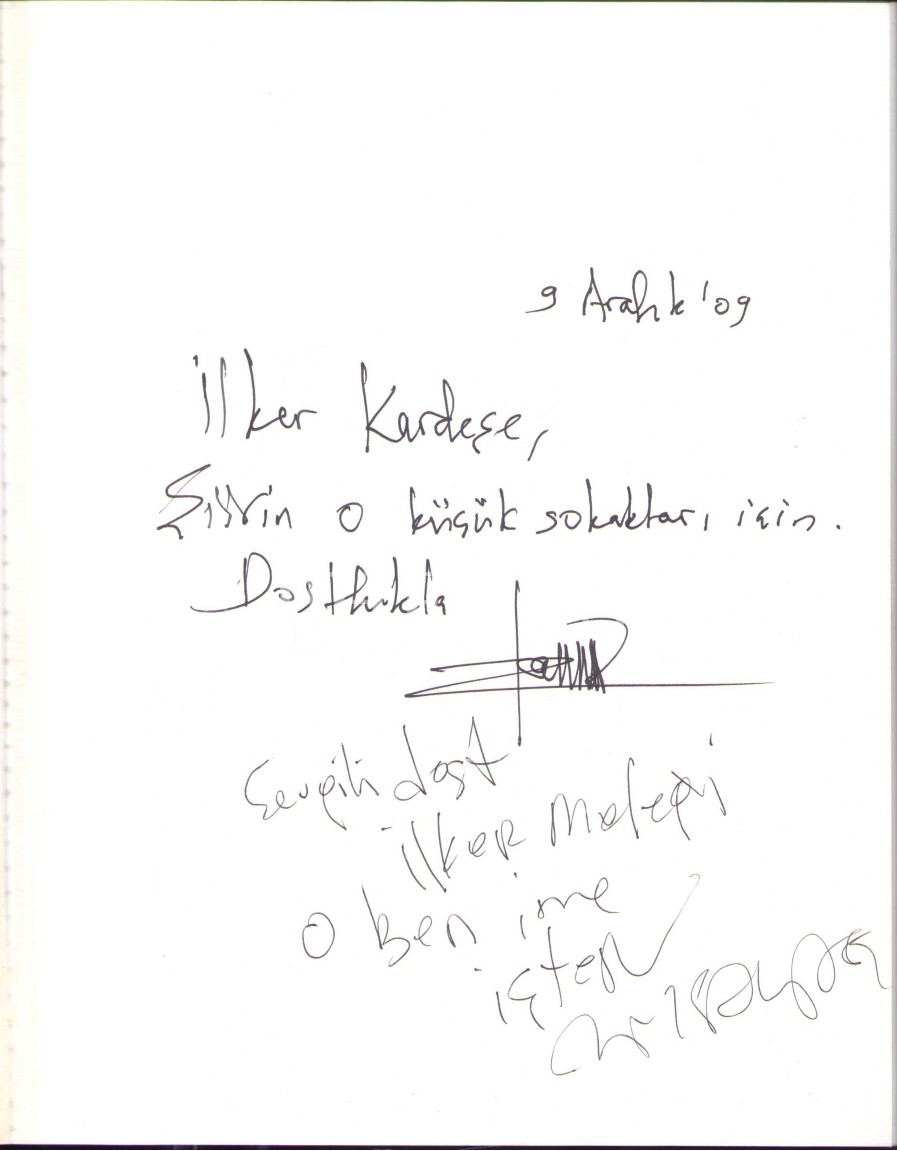 9 Aralık '09
İlker Kardeşe,
Şiirin o küçük sokakları için.
Dostlukla
Sevgili dost
İlker
O Ben ime
içten